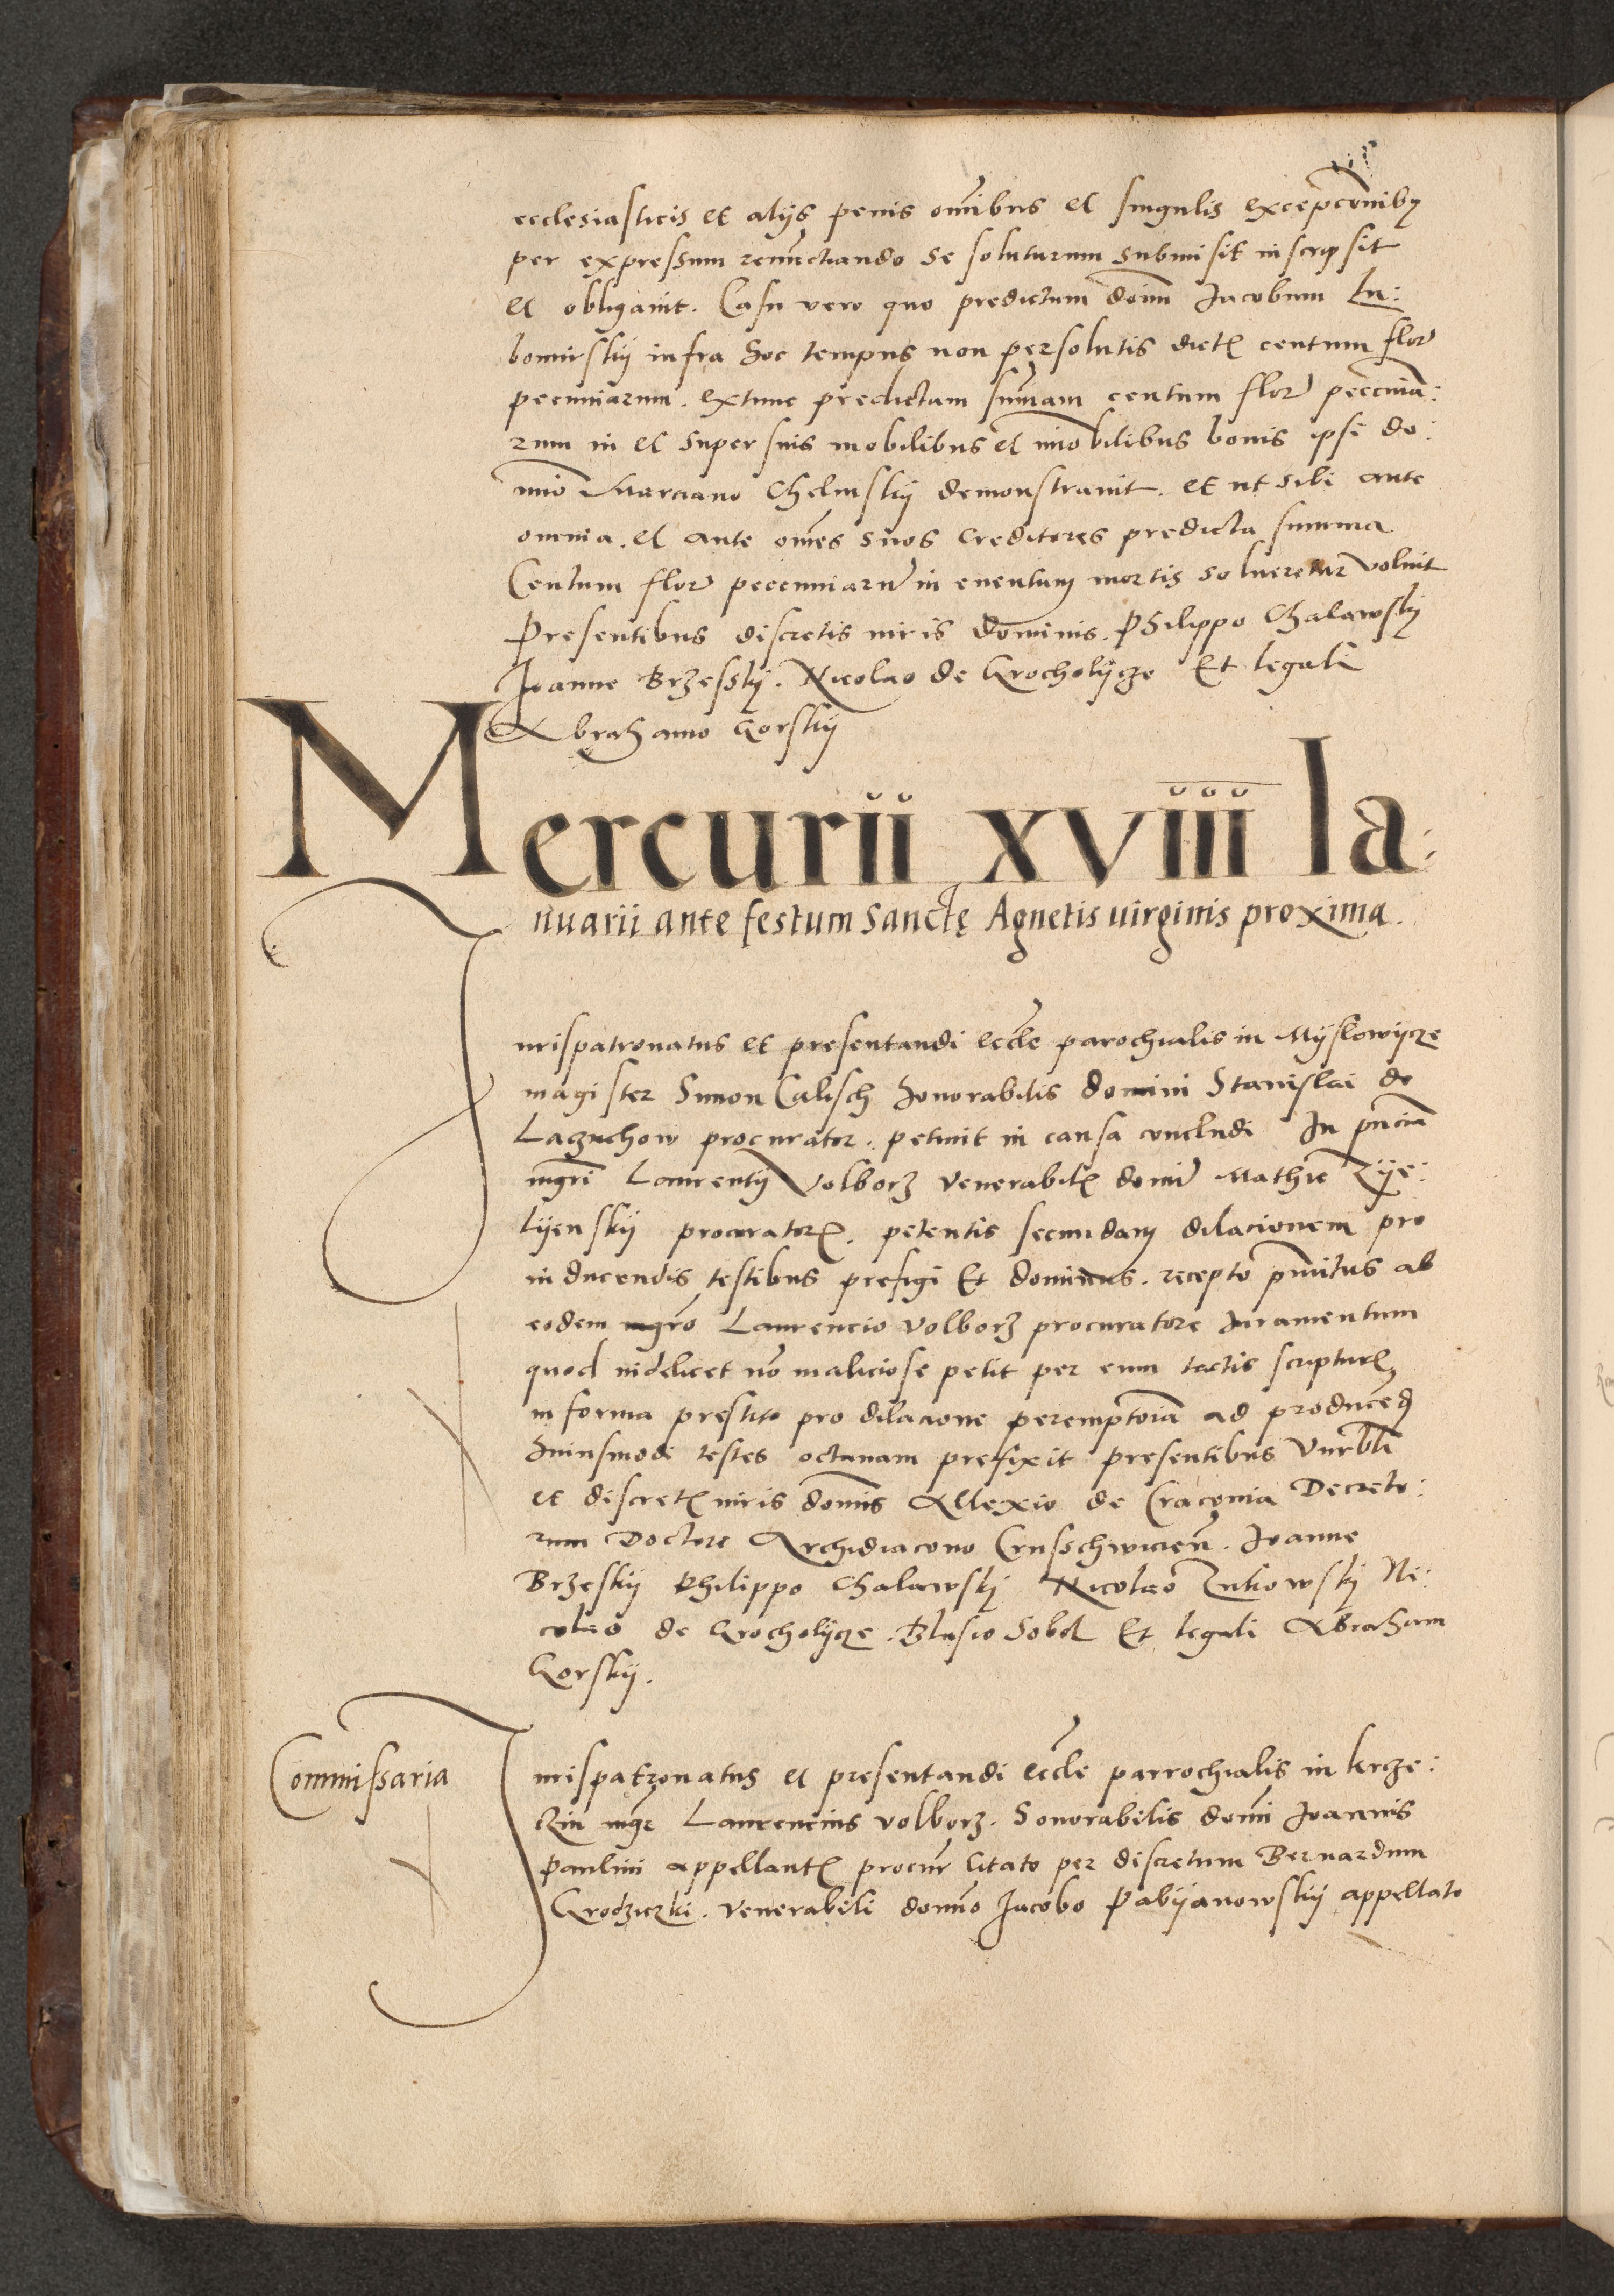 ecclesiasticis et alijs penis omibus et singulis excepcionibus
per expressum renuncciando se soluturum submisit inscripsit
et obligauit. Casu vero quo predictum dom Jacobum Lu:
bomirskij infra hoc tempus non persolutis dict centum flor
pecuniarum. extunc predictam sumam centum flor peccunia:
rum in et super suis mobilibus et imobilibus bonis ipsi do:
mio Marciano Chelmskij demonstrauit. et ut sibi ante
omnia. et ante omes suos Creditores predicta summa
Centum flor peccuniaru in euentum mortis solueretur voluit
Presentibus discretis viris dominis. Philippo Chalawskij
Joanne Brzesskij. Nicolao de Krocholijcze Et legali
Abrahamo Gorskij
Mercurii xviii Ia:
nuarii ante festum Sanctę Agnetis uirginis proxima.
Jurispatronatus et presentandi eccle parochialis in Mijslowijcze
magister Simon Calisch honorabilis domini Stanislai de
Laczuchow procurator. petiuit in causa concludi In pncia
mgri Laurentij Volborz venerabil domi Mathie Zije:
lijenskij procurator. petentis secundam dilacionem pro
inducendis testibus prefigi Et dominus. recepto pmitus ab
eodem mgro Laurencio Volborz procuratore Juramentum
quod videlicet no maliciose petit per eum tactis scriptur
in forma prestito pro dilacione peremptoria ad producend
huiusmodi testes octauam prefixit presentibus Vnrbli
et discret viris domis Allexio de Cracouia Decreto:
rum Doctore Archidiacono Crusschwicien. Joanne
Brzeskij Philippo Chalawskij Nicolao Zukowskij Ni:
colao de Krocholijcze. Blasio Sobol Et legali Abraham
Gorskij.
Commissaria
Jurispatronatus et presentandi eccle parrochialis in krcze:
czin mgr Laurencius volborz. honorabilis domi Joannis
Paulini appellant procur Citato per discretum Bernardum
Grodziczki. venerabili domno Jacobo Pabijanowskij appellato